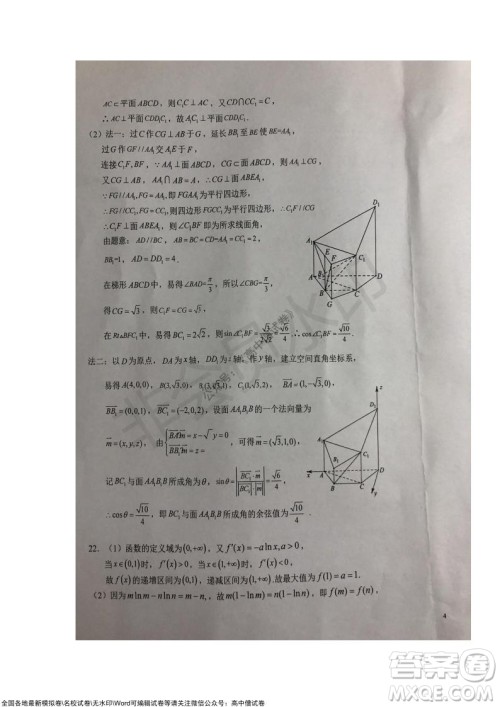 AC⊂平面ABCD，则C₁C⊥AC，又CD∩CC₁=C，
∴AC⊥平面CDD₁C₁，故A₁C₁⊥C₁D.
（2）法一：过C作CG⊥AB于G，延长BB₁至BE使BE=AA₁，
过G作GF//AA₁交A₁E于F，
连接C₁F,BF，易得FG⊥AG，
又CG⊥AB，AA₁∩AB=A，∴CG⊥面ABEA₁，
∵FG//AA₁,FG=AA₁，即FGAA₁为平行四边形，
∴FG//CC₁,FG=CC₁，则四边形FGCC₁为平行四边形，故C₁F//CG，
∴C₁F⊥面ABEA₁，则∠C₁BF为所求线面角，
由题意：AD//BC，AB=BC=CC₁=2，
BB₁=1，AD=DD₁=4.
在梯形ABCD中，易得∠BAD=π/3，所以∠CBG=π/3，
得CG=√3，所以C₁F=CG=√3，
在Rt△BFC₁中，易得BC₁=2√2，所以sin∠C₁BF=√3/2√2=√6/4，∴cos∠C₁BF=√10/4.
法二：以D为原点，DA为x轴，DD₁为z轴，作y轴，建立空间直角坐标系，
易得A(4,0,0)，B(3,√3,0)，C₁(1,√3,2)，BA=(1,-√3,0)
BB₁=(0,0,1)，BC₁=(-2,0,2)，设面AA₁B₁B的一个法向量为
m=(x,y,z)，由{BA·m=x-√3y=0 BB₁·m=z=0，可得m=(√3,1,0)，
记BC₁与面AA₁B₁B所成角为θ，sinθ=|BC₁·m/|BC₁|·|m||=√6/4，
∴cosθ=√10/4，即BC₁与面AA₁B₁B所成角的余弦值为√10/4.
22.（1）函数的定义域为(0,+∞)，又f′(x)=-a ln x,a>0，
当x∈(0,1)时，f′(x)>0，当x∈(1,+∞)时，f′(x)<0，
故f(x)的递增区间为(0,1)，递减区间为(1,+∞).故最大值为f(1)=a=1.
（2）因为m ln m-n ln n=m-n，故m(1-ln m)=n(1-ln n)，即f(m)=f(n)，
4
全国各地最新模拟卷\名校试卷\无水印\Word可编辑试卷等请关注微信公众号：高中僧试卷